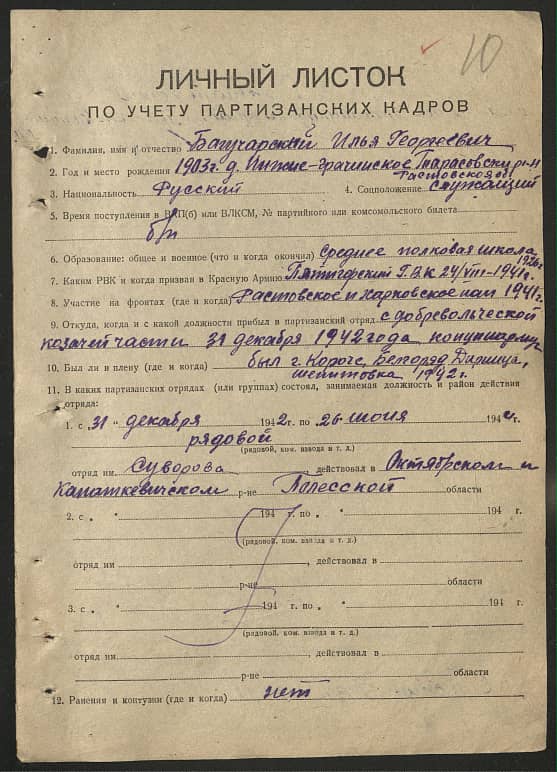 10
ЛИЧНЫЙ ЛИСТОК
ПО УЧЕТУ ПАРТИЗАНСКИХ КАДРОВ
1. Фамилия, имя и отчество Багучарский Илья Георгеевич
2. Год и место рождения 1903 г. д. Нижне-грачинское Тарасовский р-н
Растовской об
3. Национальность Русский 4. Соцположение служащий
5. Время поступления в ВКП(б) или ВЛКСМ, № партийного или комсомольского билета
б/п
6. Образование: общее и военное (что и когда окончил) среднее полковая школа
1926г
7. Каким РВК и когда призван в Красную Армию Пятигорский Г.В.К 24/VIII-1941г.
8. Участие на фронтах (где и когда) Растовское и Харковское нап 1941г.
9. Откуда, когда и с какой должности прибыл в партизанский отряд с добревольческой
козачей части 31 декабря 1942 года
10. Был ли в плену (где и когда) был г. Короче, Белгоряд Дарница,
шепитовка 1942 г.
11. В каких партизанских отрядах (или группах) состоял, занимаемая должность и район действия
отряда:
1. с „31" декабря 1942 г. по „26" июня 1944 г.
рядовой
(рядовой, ком. взвода и т. д.)
отряд им. Суворова действовал в Октябрском и
Капаткевичском р-не Полесской области
2. с „ " 194 г. по „ " 194 г.
(рядовой, ком. взвода и т. д.)
отряд им , действовал в
р-не области
3. с „ " 194 г. по „ " 194 г.
(рядовой, ком. взвода и т. д.)
отряд им , действовал в
р-не области
12. Ранения и контузии (где и когда) нет